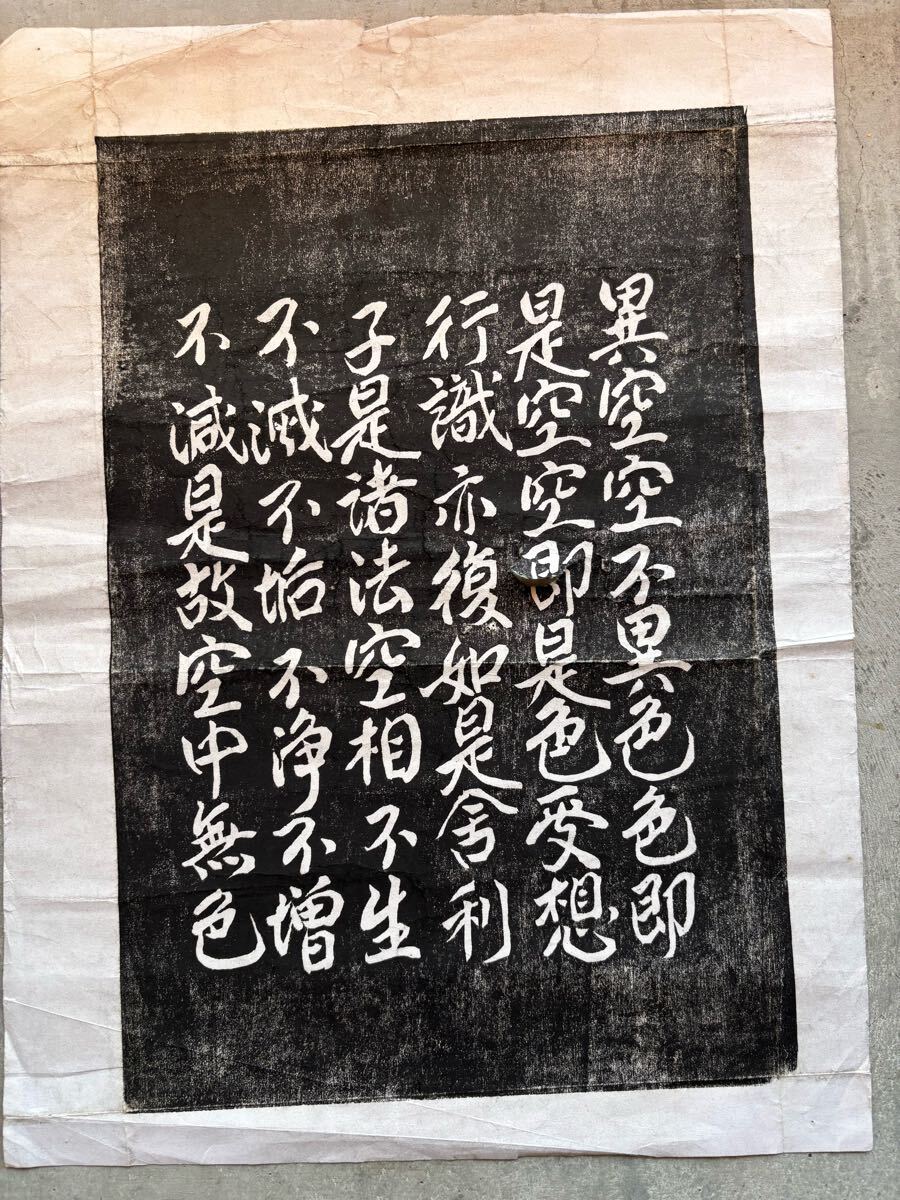 異空空不異色色即
是空空即是色受想
行識亦復如是舍利
子是諸法空相不生
不滅不垢不淨不增
不減是故空中無色